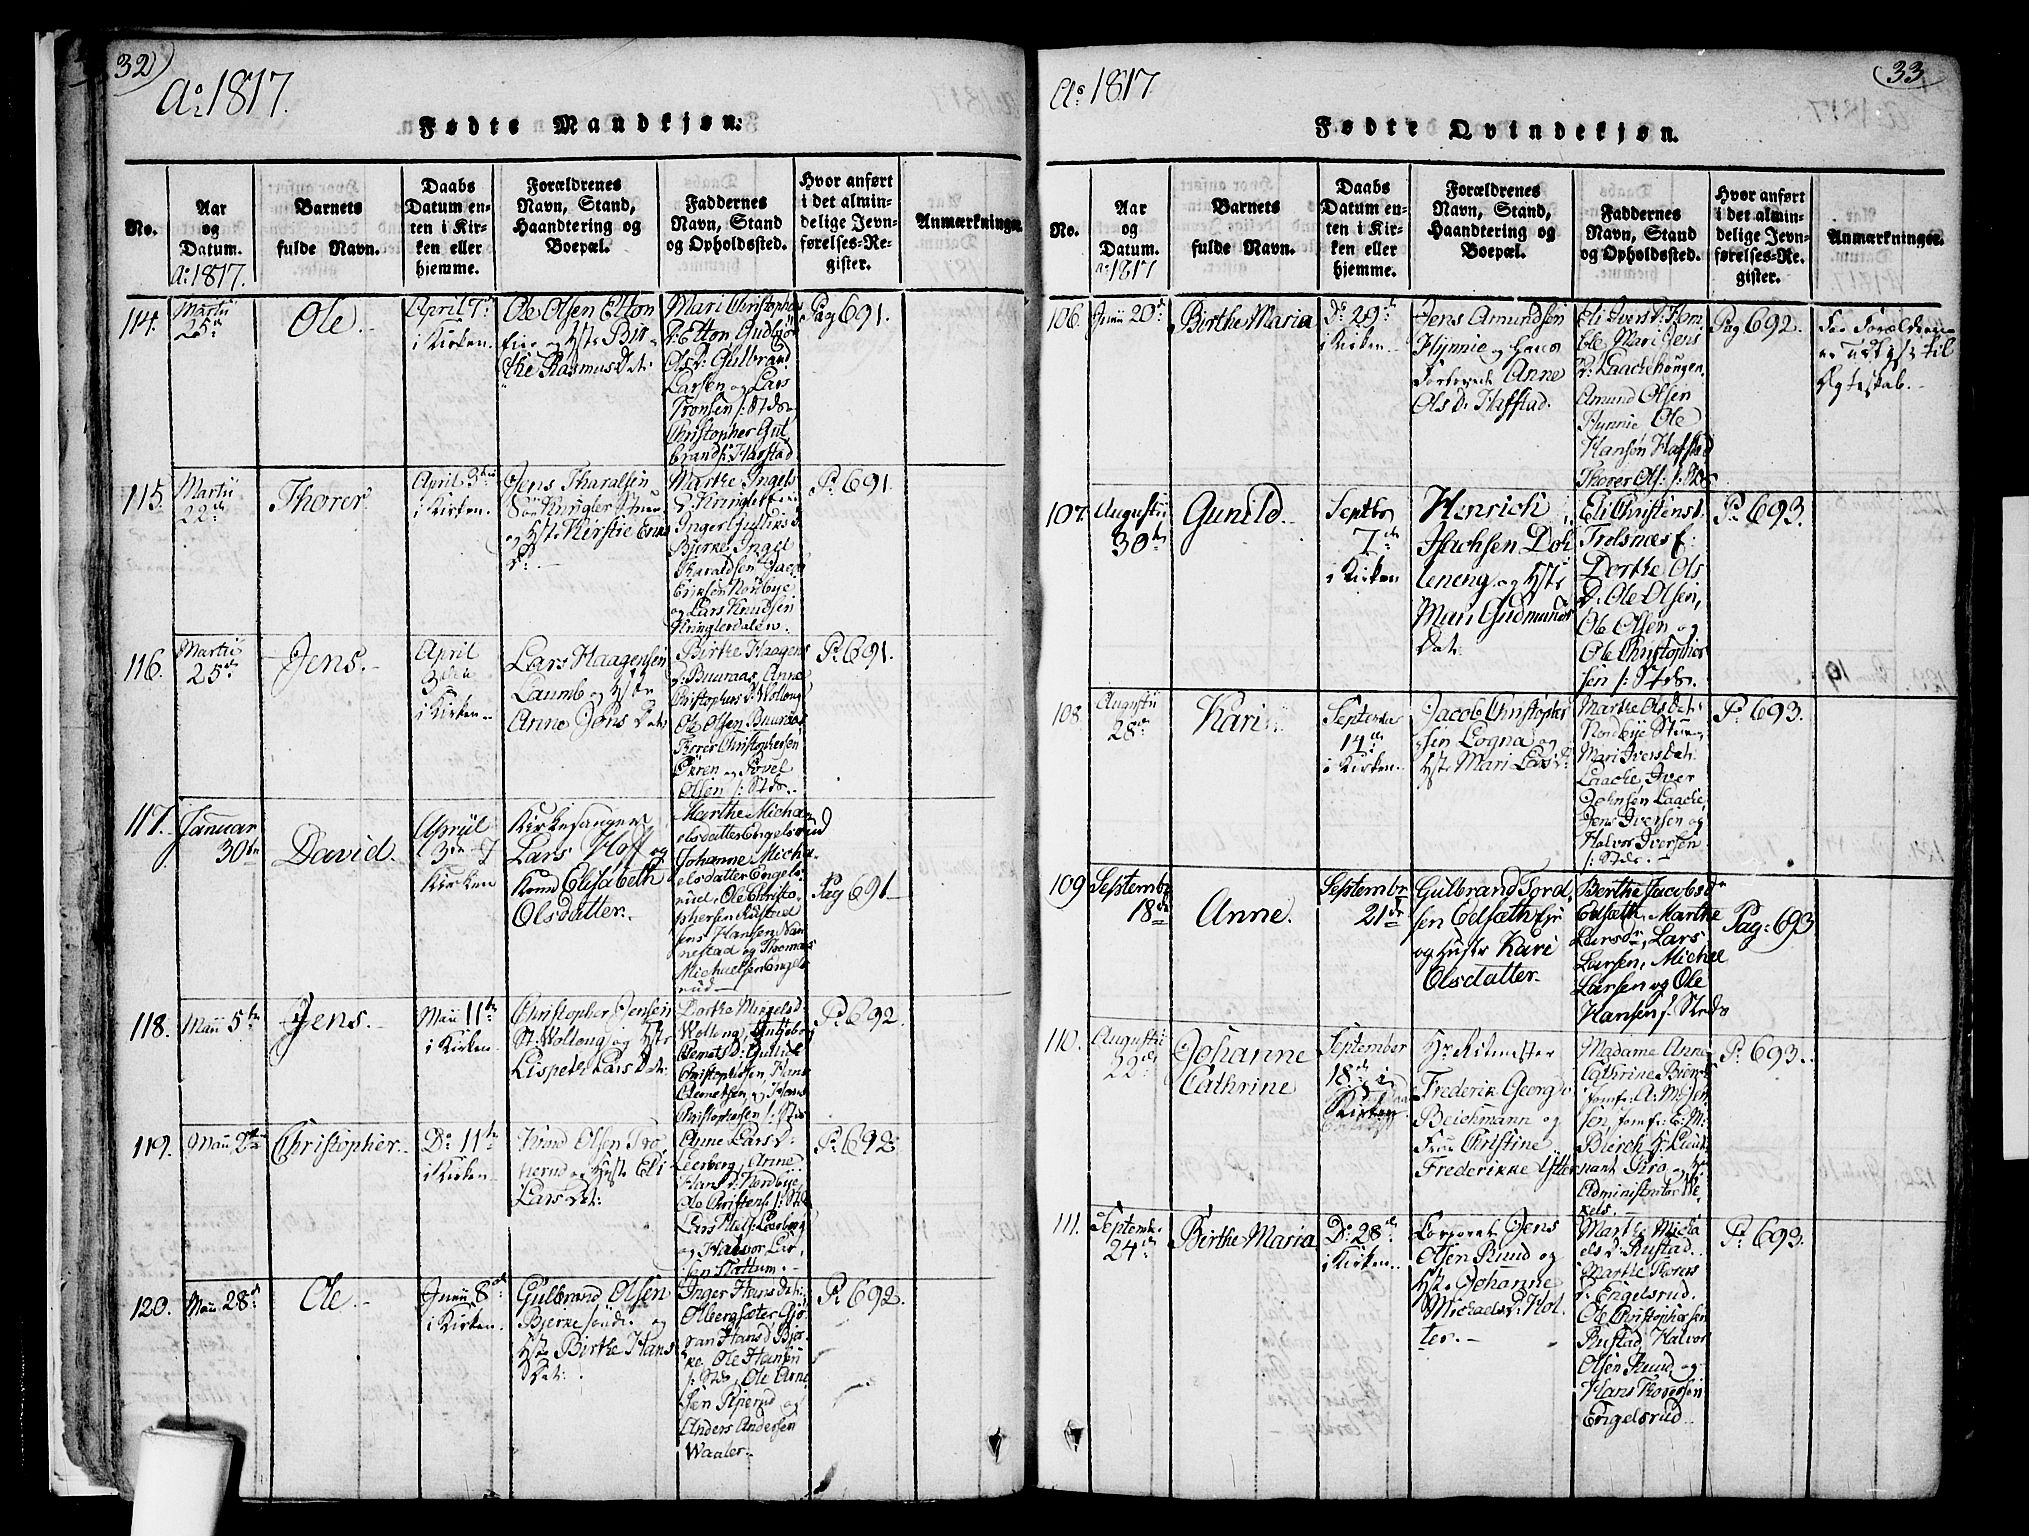 32
Ao 1817.
Fødte Mandkjøn.
No.
Aar og Datum.
Ao 1817.
Barnets fulde Navn.
Daabs Datum enten i Kirken eller hjemme.
Forældrenes Navn, Stand, Haandtering og Boepæl.
Faddernes Navn, Stand og Opholdssted.
Hvor anført i det almindelige Jevnførelses-Register.
Anmærkninger.
114.
Martii 25de
Ole.
April 7de
i Kirken.
Ole Olsen Etton
og Hstr Birthe Rasmus Dat:
Mari Christophers
D: Etton
Ols D: Gulbrand
Larsen og Lars
Tronsen /: Stds
Christopher Gulbrands: Harstad
Pag 691.
115.
Martii 22de
Thorer.
April 3die
i Kirken.
Jens Tharalsen
og Hst: Kirstie Eriks D:
Marthe Ingels
D: Kringler
Inger Gulliks D:
Bjerke, Ingel
Tharaldsen, Jacob
Eriksen Nordbye
og Lars Knudsen
Kringlerdalen.
P: 691.
116.
Martii 25de
Jens.
April 3die
i Kirken.
Lars Haagensen
Laumb og Hstr
Anne Jens Dat:
Birthe Haagens
D: Buuraas, Anne
Christophers D: Wolloug
Ole Olsen Buuraas
Thorer Christophersen
Ouren og Povel
Olsen /: Stds.
P: 691.
117.
Januar 30te
David.
April 3die i
Kirken
Kirkesanger
Lars Hoff og
Kone Elisabeth
Olsdatter.
Marthe Michaelsdatter Engelsrud
Johanne Michaelsdatter Engelsrud, Ole Christophersen Rustad
Jens Hansen Nannestad og Thomas
Michaelsen Engelsrud
Pag 691
118.
Maii 5te
Jens.
Maii 11te
i Kirken.
Christopher Jensen
St: Wolloug og Hstr
Lispeth Lars Dat:
Dorthe Migels D
Wolloug, Ingeborg
Clemets D: Gullik
Christophersen, Hans
Clemetsen, og Hans
Christophersen /: Stds
P: 692.
119.
Maii 2den
Christopher.
Do 11te
i Kirken.
Knud Olsen
og Hstr Eli
Lars Dat:
Anne Lars D:
Leerberg, Anne
Hans D: Nordbye,
Ole Christens: /: Stds
Lars Hals: Leerberg
og Halvor Larsen Stottum.
P: 692.
120.
Maii 28de
Ole.
Junii 8de
i Kirken.
Gulbrand Olsen
Bjerke søndre og
Hstr Birthe Hans
Dat:
Inger Hans Dat:
Olbergsæter, Gjøran Hans D Bjerke, Ole Hansen
/: Stds, Ole Arnesen Riperud og
Anders Andersen
Waaler.
P: 692.
33
Ao 1817
Fødte Qvindekjøn.
No.
Aar og Datum.
Ao 1817
Barnets fulde Navn.
Daabs Datum enten i Kirken eller hjemme.
Forældrenes Navn, Stand, Haandtering og Boepæl.
Faddernes Navn, Stand og Opholdssted.
Hvor anført i det almindelige Jevnførelses-Register.
Anmærkninger.
106.
Junii 20de
Birthe Maria
Do 29de
i Kirken.
Jens Amundsen
Hynnie og hans
Forlovede Anne
Ols D: Haffstad.
Eli Ivers D:
Mari Jens
D: Laachehougen.
Amund Olsen
Hynnie Ole
Hansen Hafstad
Thorer Ols: /: Stds.
Pag 692.
Forældrene
er udlyst til
Ægteskab.
107.
Augustii 30te
Gunild.
Septbr 7de
i Kirken
Henrich
Isachsen Dohleneng og Hstr
Mari Gudmunds
Dat:
Eli Christens D.
Trolsnæs
Dorthe Ols
D: Ole Olsen,
Ole Olsen og
Ole Christophersen /: Stds.
P: 693.
108.
Augustii 28de
Kari
Septembr 14de
i Kirken.
Jacob Christophersen Logna og
Hstr Mari Lars D:
Marthe Ols Dat:
Nordbye
Mari Ivers Dat:
Laache, Iver
Johnsen Laache
Jens Iversen og
Halvor Iversen
/: Stds.
P: 693.
109
Septembr 18de
Anne.
Septembr 21de
Gulbrand Tordsen Edsæth
og Hustr Kari
Olsdatter.
Berthe Jacobsdr
Edsæth, Marthe
Larsdr, Lars
Larsen, Michel
Larsen og Ole
Hansen /: Stds
Pag: 693
110.
Augustii 22de
Johanne Cathrine
September 18de i
Kirken
Hr Ritmester
Frederik Georg v
Beichmann og
Frue Christine
Frederikke Ister
Madame Anne
Cathrine
Jomf: A: M: Jensen, Jomf: E: M:
Bierch, H: Lieutnant Kro og Hr
Administrator Wessels.
P: 693.
111.
Septembr 24de
Birthe Maria
Do 28de
i Kirken.
Corporal Jens
Olsen Ruud og
Hstr Johanne
Michaels D: Holter.
Marthe Michaels D: Rustad.
Marthe Thorers
D: Engelsrud.
Ole Christophersen
Rustad, Halvor
Olsen Ruud og
Hans Thorersen
Engelsrud.
P: 693.